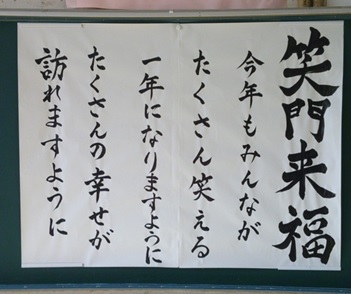 笑門来福
今年もみんなが
たくさん笑える
一年になりますように
たくさんの幸せが
訪れますように